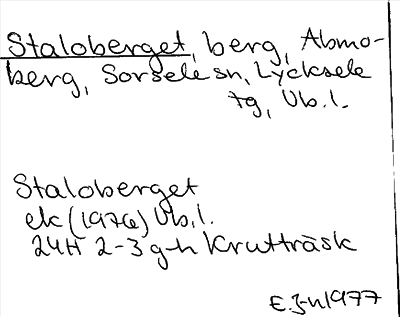 Staloberget, berg, Abmo-
berg, Sorsele sn, Lycksele
tg, Vb.l.
Staloberget
ek (1976) Vb.l.
24H 2-3 g-h Krutträsk
E.J-n 1977